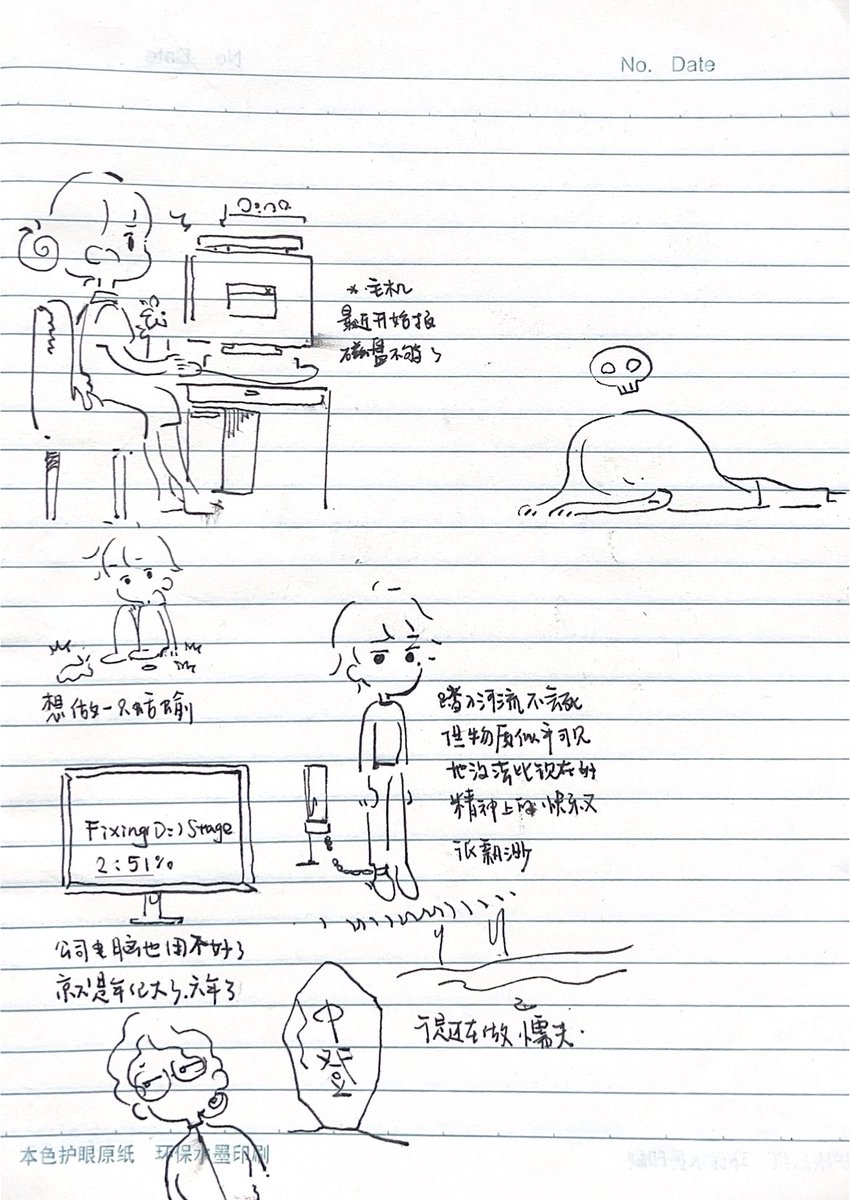 No. Date
Dina
*主机
最近开始报
磁盘不够了
想做一只蛞蝓
踏入河流不会死
但物质似乎可见
地没法比现在好
精神上的快乐又
很新渺
Fixing(D:)Stage
2:51%
公司电脑也用不好了
就是年纪大了.六年了
于是还在做懦夫.
本色护眼原纸 环保水墨印刷